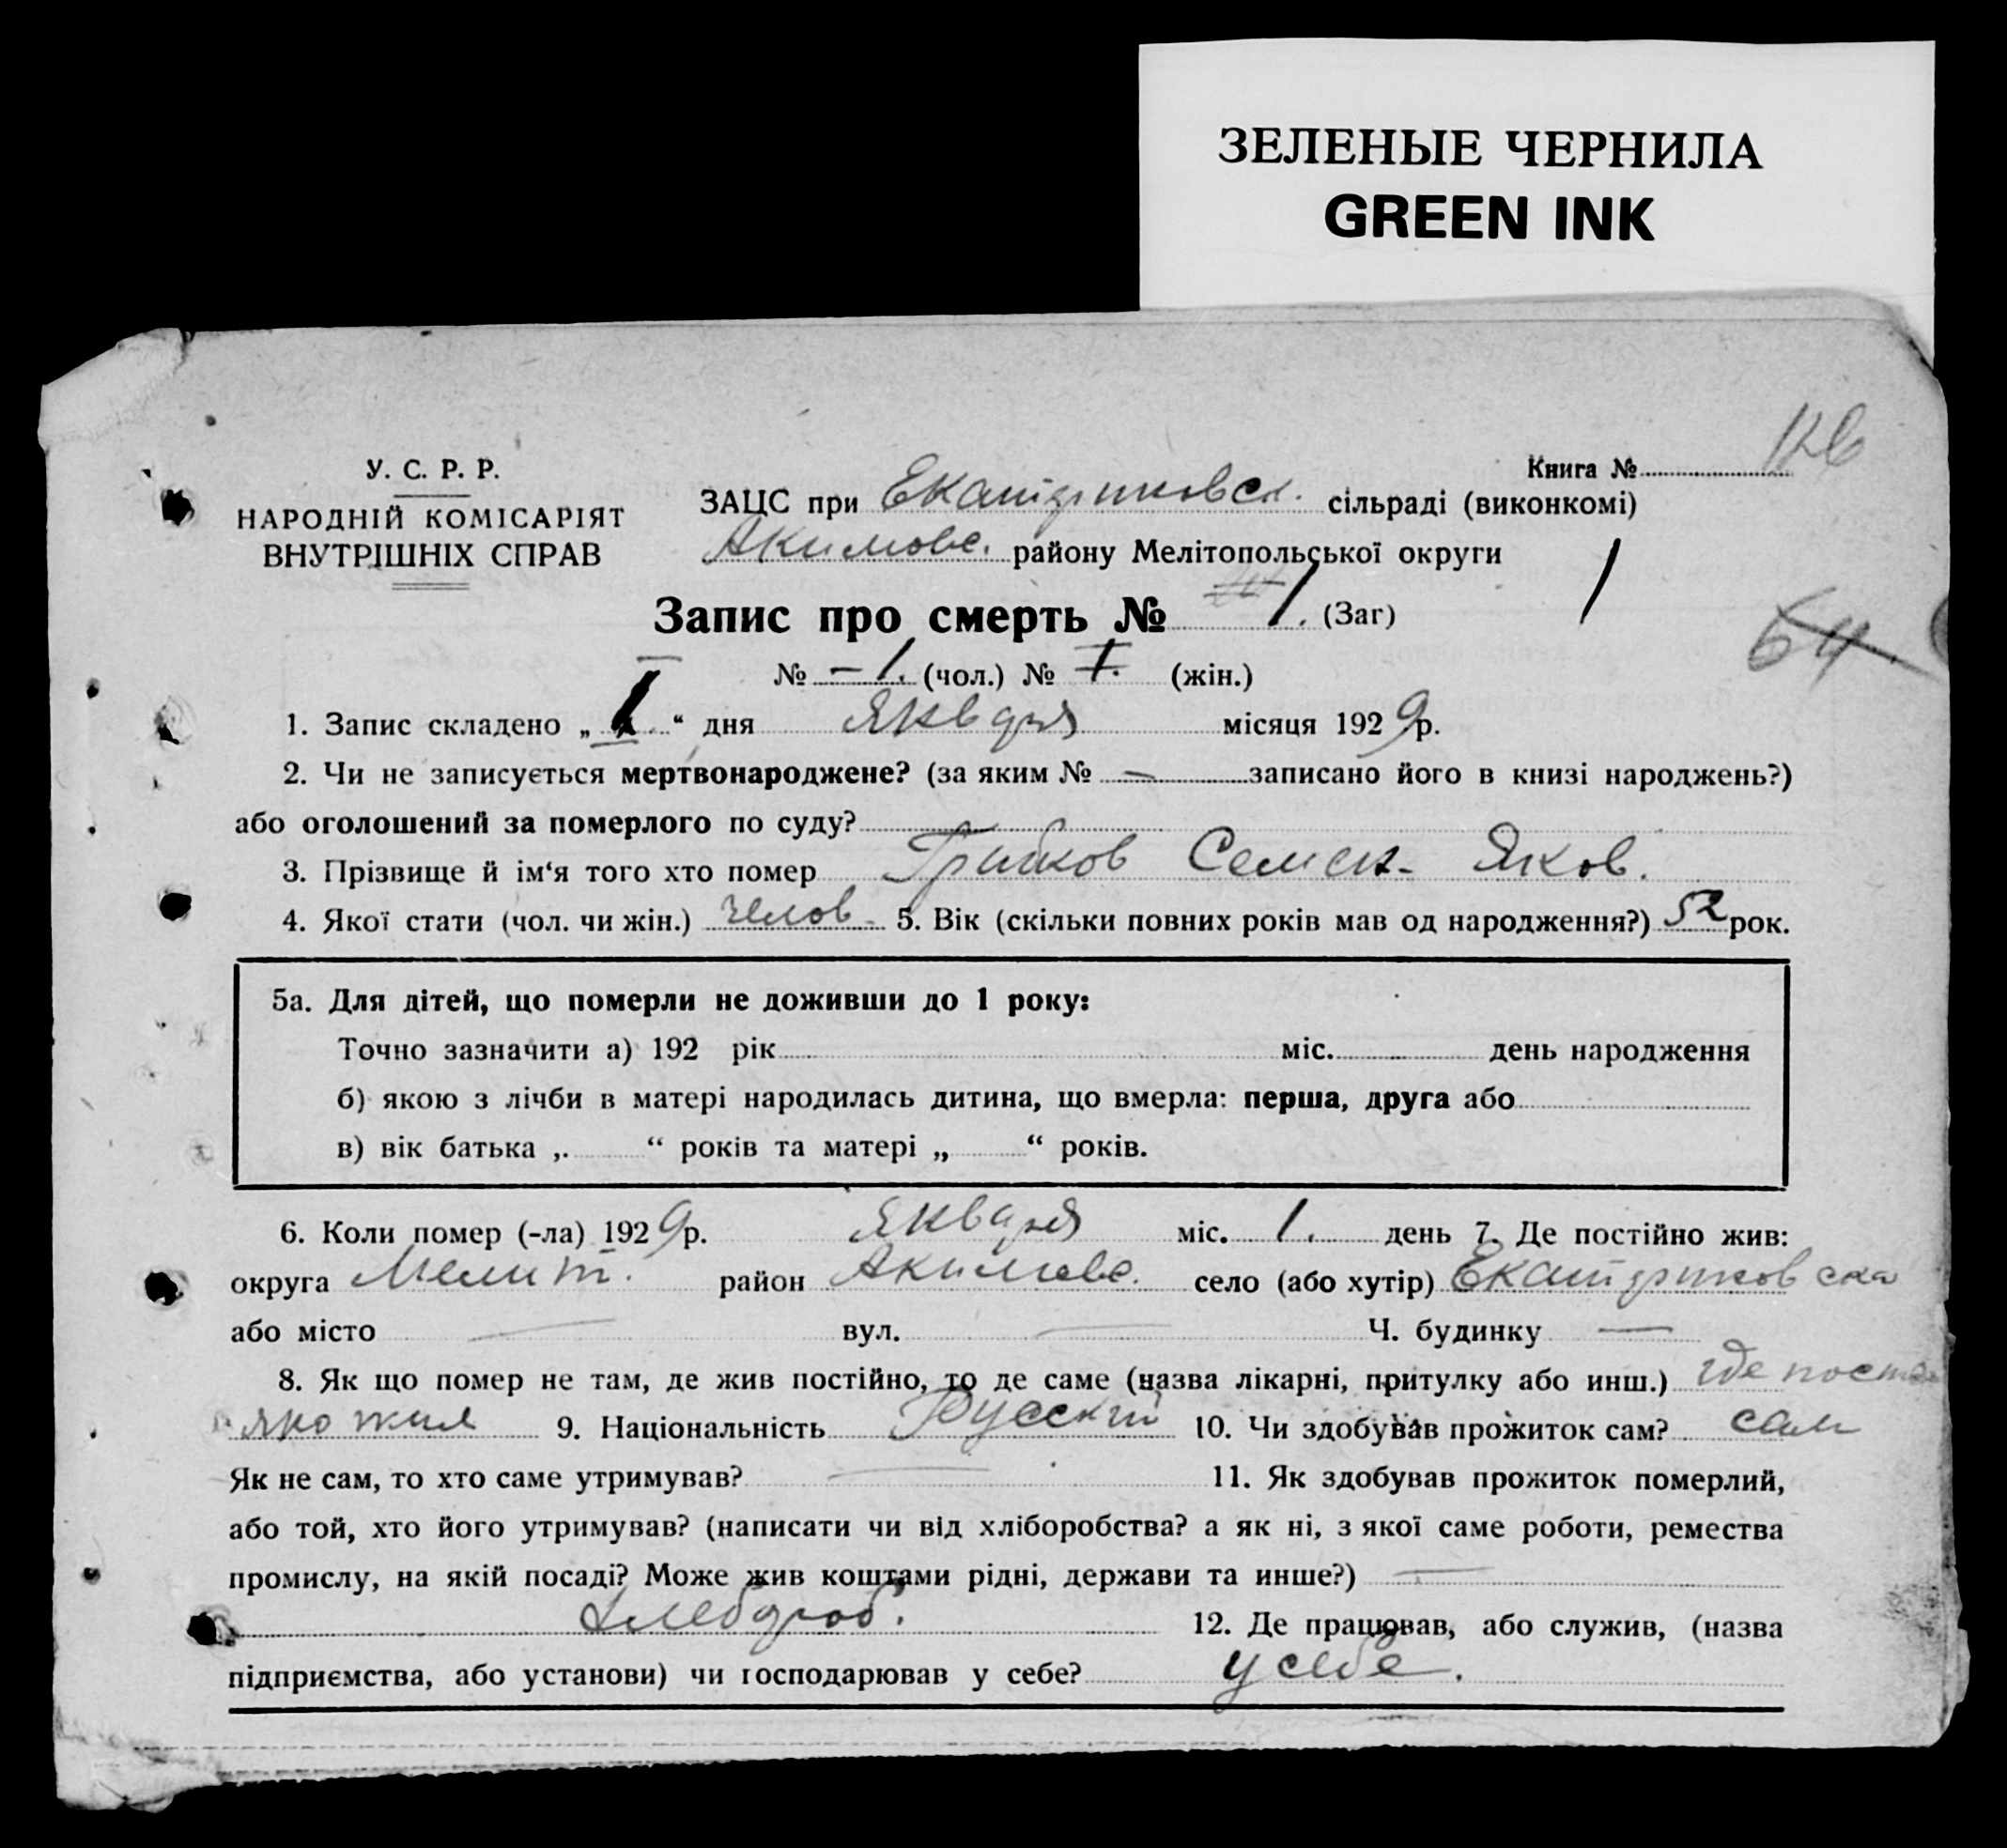 ЗЕЛЕНЫЕ ЧЕРНИЛА
GREEN INK
У. С. Р. Р.
НАРОДНІЙ КОМІСАРІЯТ
ВНУТРІШНІХ СПРАВ
Книга №
ЗАЦС при сільраді (виконкомі)
Акимовс. району Мелітопольської округи
1
Запис про смерть № 1. (Заг)
64
№ – 1. (чол.) № (жін.)
1. Запис складено „ “ дня Января місяця 1929р.
2. Чи не записується мертвонароджене? (за яким № – записано його в книзі народжень?)
або оголошений за померлого по суду?
3. Прізвище й ім‘я того хто помер Яков.
4. Якої стати (чол. чи жін.) челов. 5. Вік (скільки повних років мав од народження?) 52 рок.
5а. Для дітей, що померли не доживши до 1 року:
Точно зазначити а) 192 рік міс. день народження
б) якою з лічби в матері народилась дитина, що вмерла: перша, друга або
в) вік батька „ “ років та матері „ “ років.
6. Коли помер (-ла) 1929р. Января міс. 1. день 7. Де постійно жив:
округа Мелит. район Акимовс. село (або хутір)
або місто — вул. — Ч. будинку —
8. Як що помер не там, де жив постійно, то де саме (назва лікарні, притулку або инш.) где
жил 9. Національність Русский 10. Чи здобував прожиток сам? сам
Як не сам, то хто саме утримував? — 11. Як здобував прожиток померлий,
або той, хто його утримував? (написати чи від хліборобства? а як ні, з якої саме роботи, ремества
промислу, на якій посаді? Може жив коштами рідні, держави та инше?) —
12. Де працював, або служив, (назва
підприємства, або установи) чи господарював у себе? у себе.